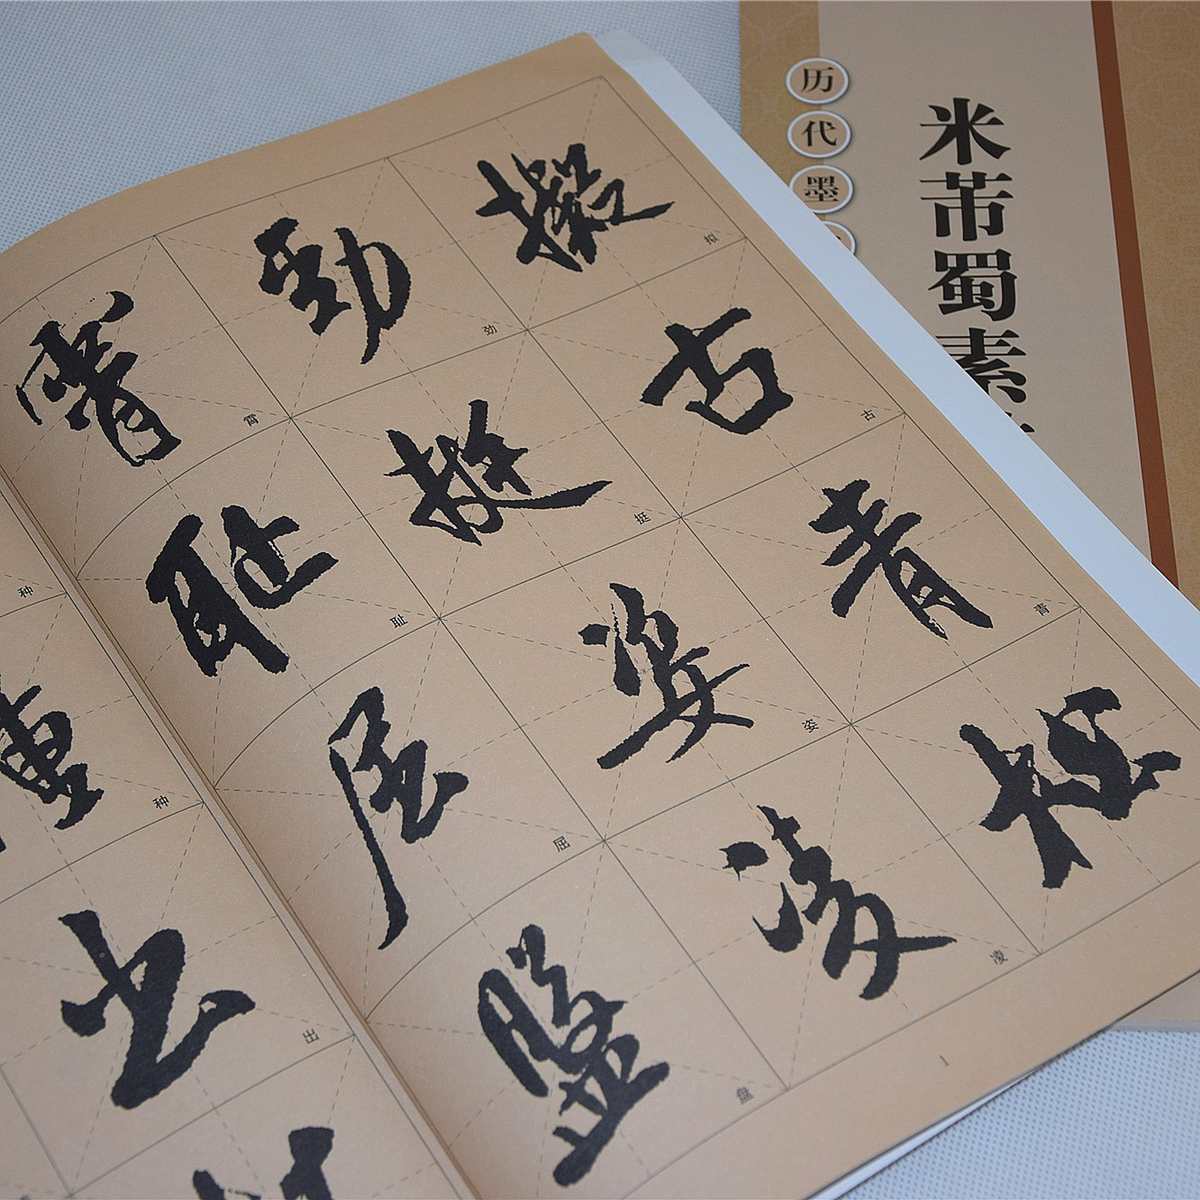 历代墨
米芾蜀素
擬古青松
拟
古
青
勁挺姿凌
劲
挺
姿
凌
霄耻屈盤
霄
耻
屈
盘
1
种
种
出
出